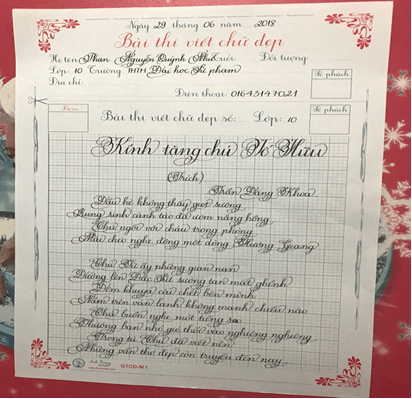 Ngày 29 tháng 06 năm 2018
Bài thi viết chữ đẹp
Họ tên: Phan Nguyễn Quỳnh Như Giới: Đối tượng:
Lớp: 10 Trường THTH Đại học Sư phạm
Địa chỉ:
Điện thoại: 01645147021
Số phách
Điểm
Bài thi viết chữ đẹp số: Lớp: 10
Số phách
Kính tặng chú Tố Hữu
(Trích)
Trần Đăng Khoa
Đầu hè không thấy giọt sương
Rưng sinh cành táo đã ươm nắng hồng
Chú ngồi với cháu trong phòng
Mái chèo nghe động một dòng Hương Giang
Chú ơi ấy những gian nan
Đường lên Đắc Sút sương tan mặt ghềnh
Đêm khuya cái chết bên mình
Nằm trên ván lạnh không manh chiếu nào
Chú buồn nghe một tiếng sao
Thương bàn nhỏ gió thổi vào nghiêng nghiêng
Trong tù Chú đã viết nên
Những vần thơ đẹp còn truyền đến nay
GTCD-M1